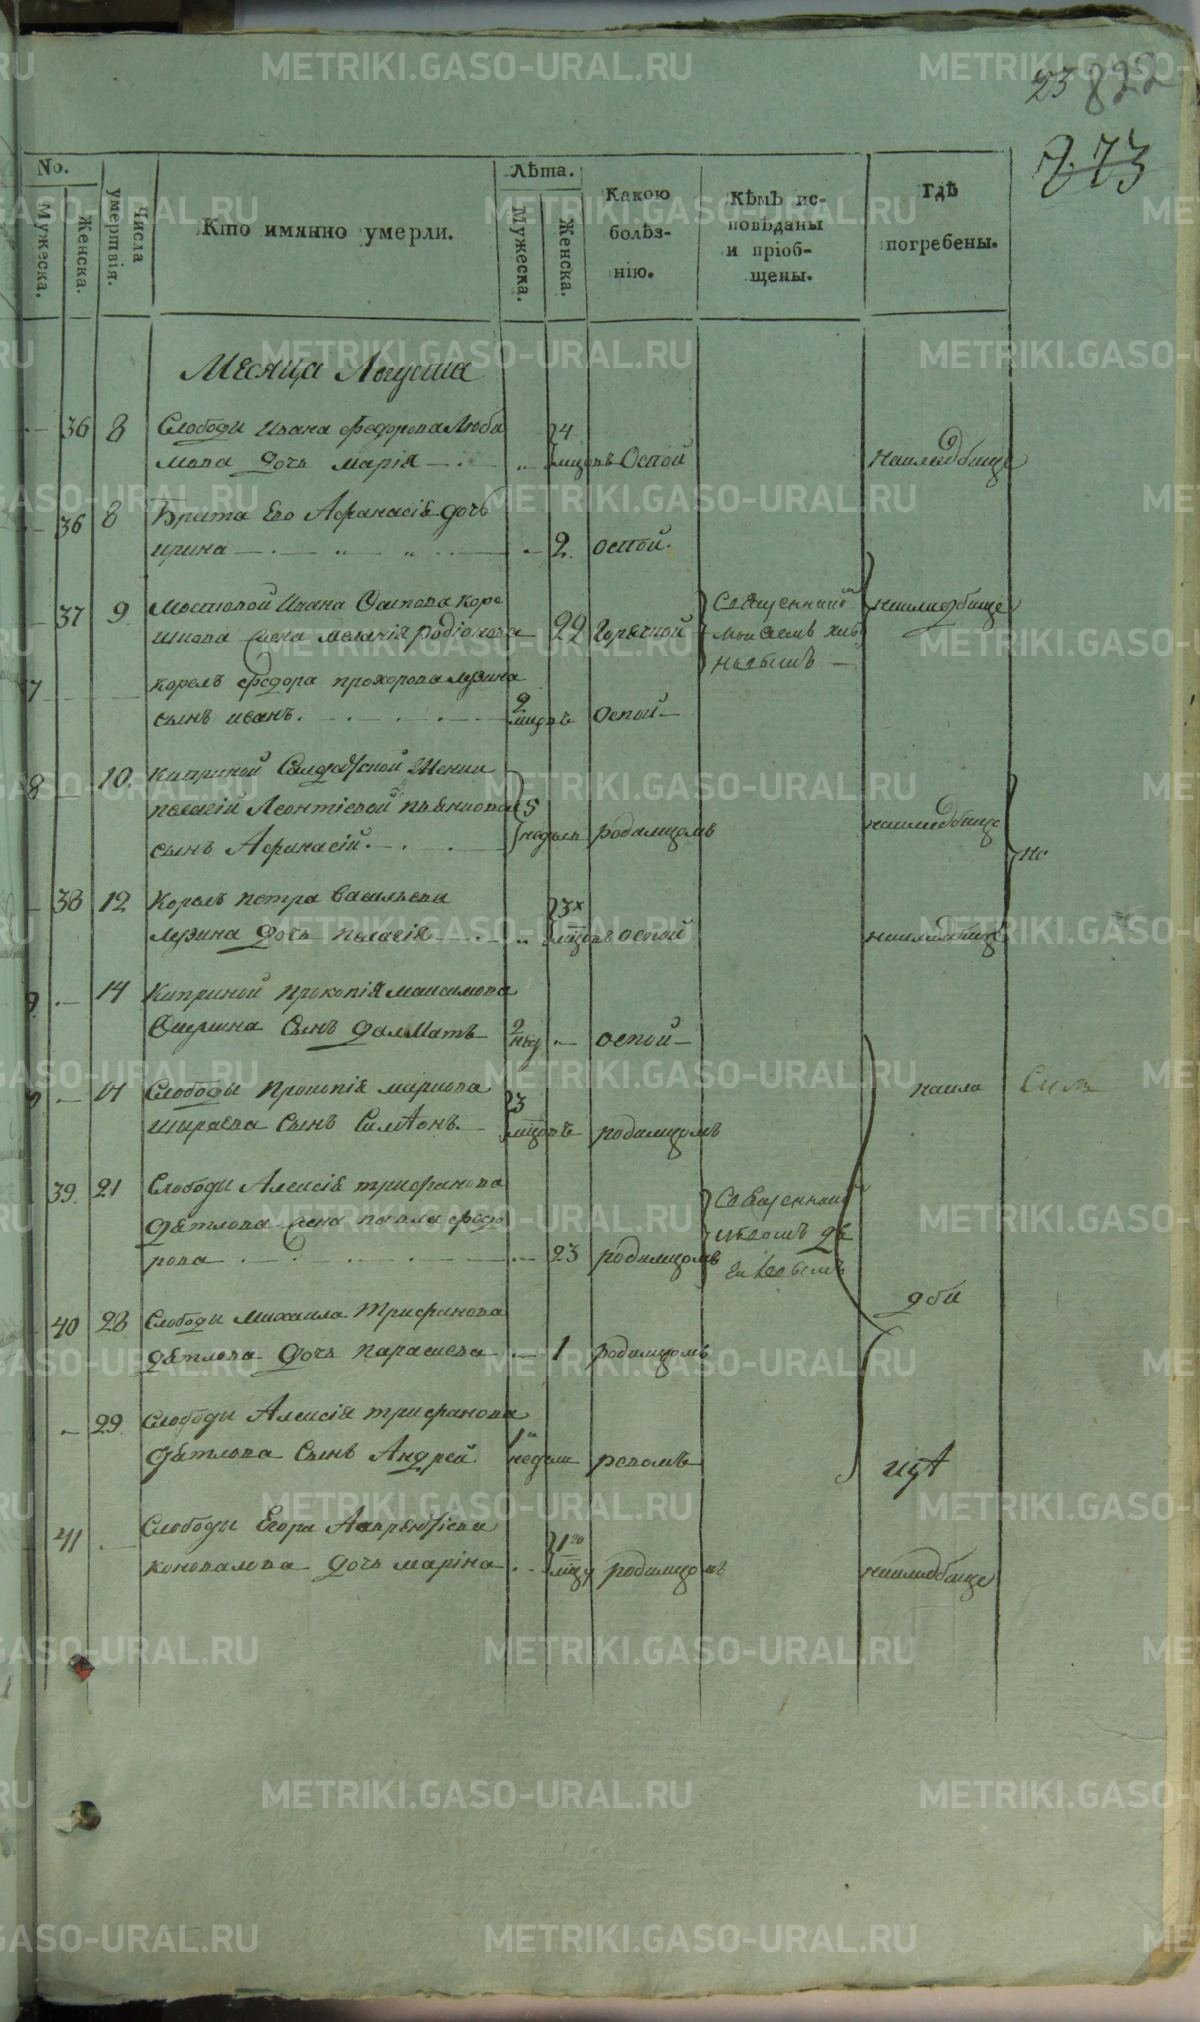 23 822
873
No.
Мужеска.
Женска.
Числа умертвія.
Кто имянно умерли.
Лѣта.
Мужеска.
Женска.
Какою болѣз-
нію.
Кѣмъ ис-
повѣданы
и пріоб-
щены.
Гдѣ
погребены.
Месяца Августа
36 8 Слободы Ивана Федорова Люби 4
мова дочь Марія месцовъ Оспой накладбище
36 8 Брата Его Афанасія дочь
Ирина 2. оспой.
37 9. Мостовой Ивана Осипова Коре
шкова жена Меланія родіонова 29 Горячкой накладбище
Священник
7 Корелъ Федора прохорова Лузина
сынъ иванъ. 2 месцовъ Оспой
8 10. Киприной Салдатской Женки
пелагіи Леонтіевой 5
сынъ Афанасій. недель родимцомъ накладбище
38 12 Корелъ петра Васильева 3х
Лузина дочь пелагія месцовъ оспой накладбище
14 Киприной прокопія максимова
сынъ далматъ 2 нед оспой
14 Слободы прокопія маркова 3
Ширяева сынъ Симеонъ. месцовъ родимцомъ
накла
39. 21 Слободы Алексія трифанова
дѣтлова жена павла федо
рова 23 родимцомъ
Священник
дби
40 28 Слободы михаила Трифанова
дѣтлова дочь параскева 1 родимцомъ
29. Слободы Алексія трифанова
дѣтлова Сынъ Андрей 1 недели
щѣ
41 Слободы Егора
коновалова дочь марина 1го месцу родимцомъ накладбище
METRIKI.GASO-URAL.RU